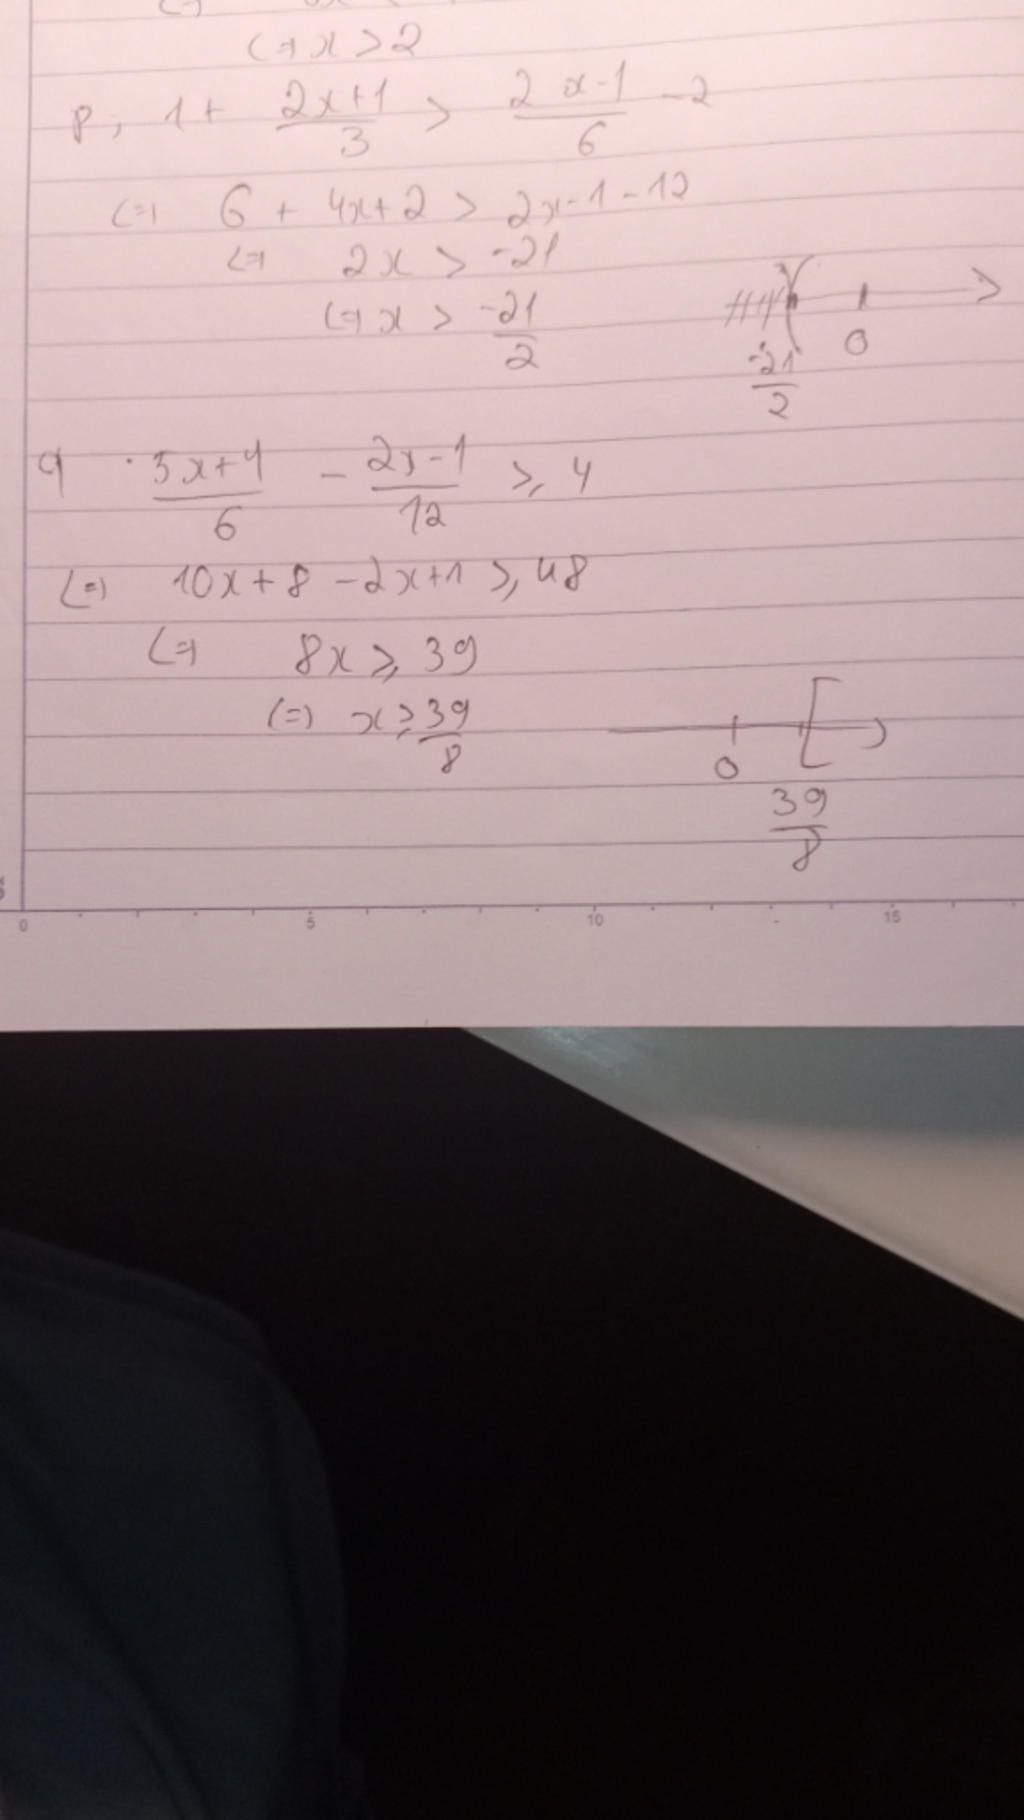 (=) x > 2
p; 1 + \frac{2x+1}{3} > \frac{2x-1}{6} - 2
(=) 6 + 4x+2 > 2x-1-12
(=) 2x > -21
(=) x > \frac{-21}{2}
\frac{-21}{2} 0
q \frac{5x+4}{6} - \frac{2x-1}{12} ⩾ 4
(=) 10x+8-2x+1 ⩾ 48
(=) 8x ⩾ 39
(=) x ⩾ \frac{39}{8}
0 \frac{39}{8}
0 5 10 15